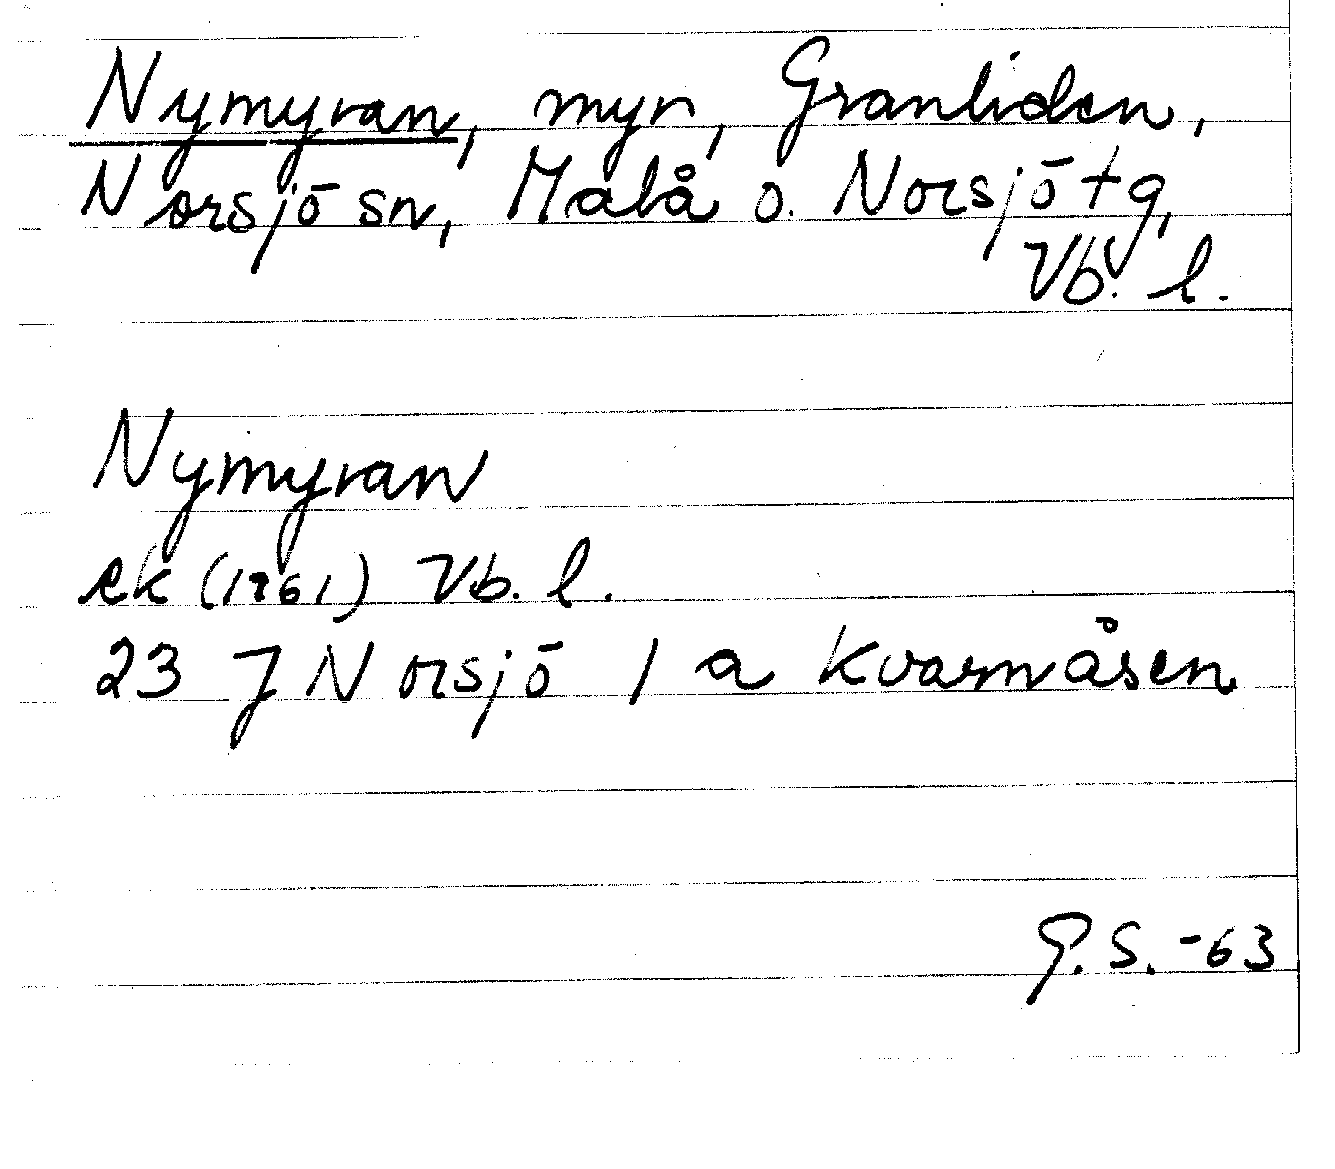 Nymyran, myr, Granliden,
Norsjö sn, Malå o. Norsjö tg,
Vb. l.
Nymyran
ek (1961) Vb. l.
23 J Norsjö 1 a Kvarnåsen
G. S. -63